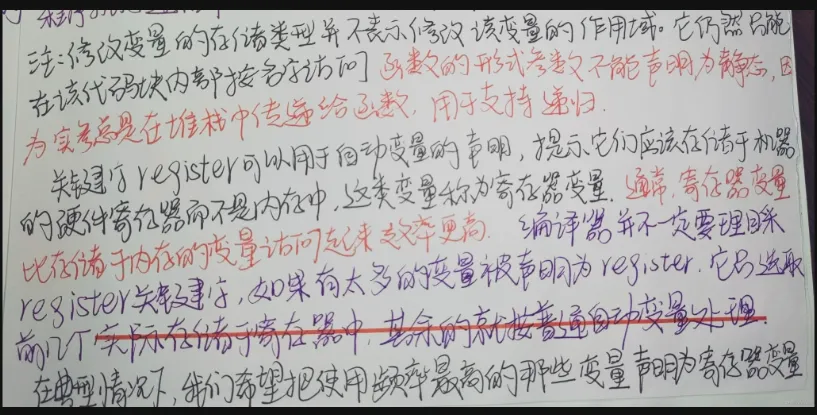 注：修改变量的存储类型并不表示修改该变量的作用域。它仍然只能
在该代码块内部按名字访问 函数的形式参数不能声明为静态，因
为实参总是在堆栈中传递给函数，用于支持递归.
关键字register可以用于自动变量的声明，提示它们应该存储于机器
的硬件寄存器而不是内存中，这类变量称为寄存器变量. 通常，寄存器变量
比存储于内存的变量访问起来效率更高. 编译器并不一定要理睬
register关键字，如果有太多的变量被声明为register. 它只选取
前几个实际存储于寄存器中，其余的就按普通自动变量处理.
在典型情况下，我们希望把使用频率最高的那些变量声明为寄存器变量